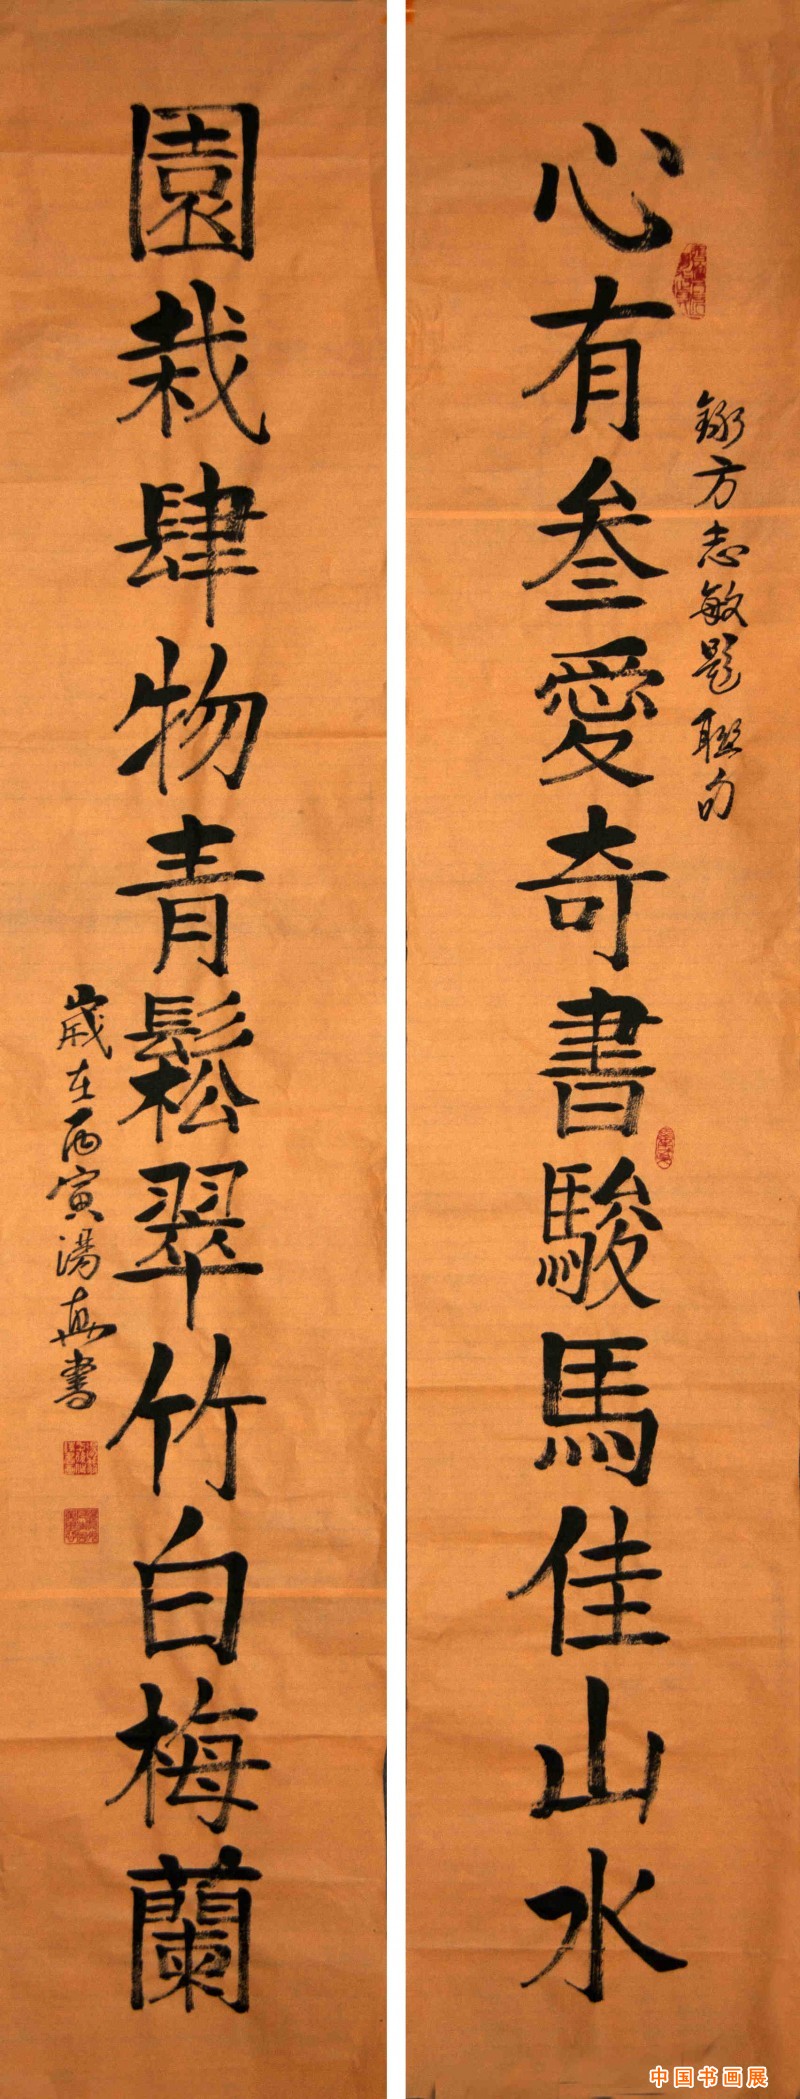 心有叁愛奇書駿馬佳山水
錄方志敏題聯句
園栽肆物青鬆翠竹白梅蘭
歲在丙寅湯海書
中国书画展